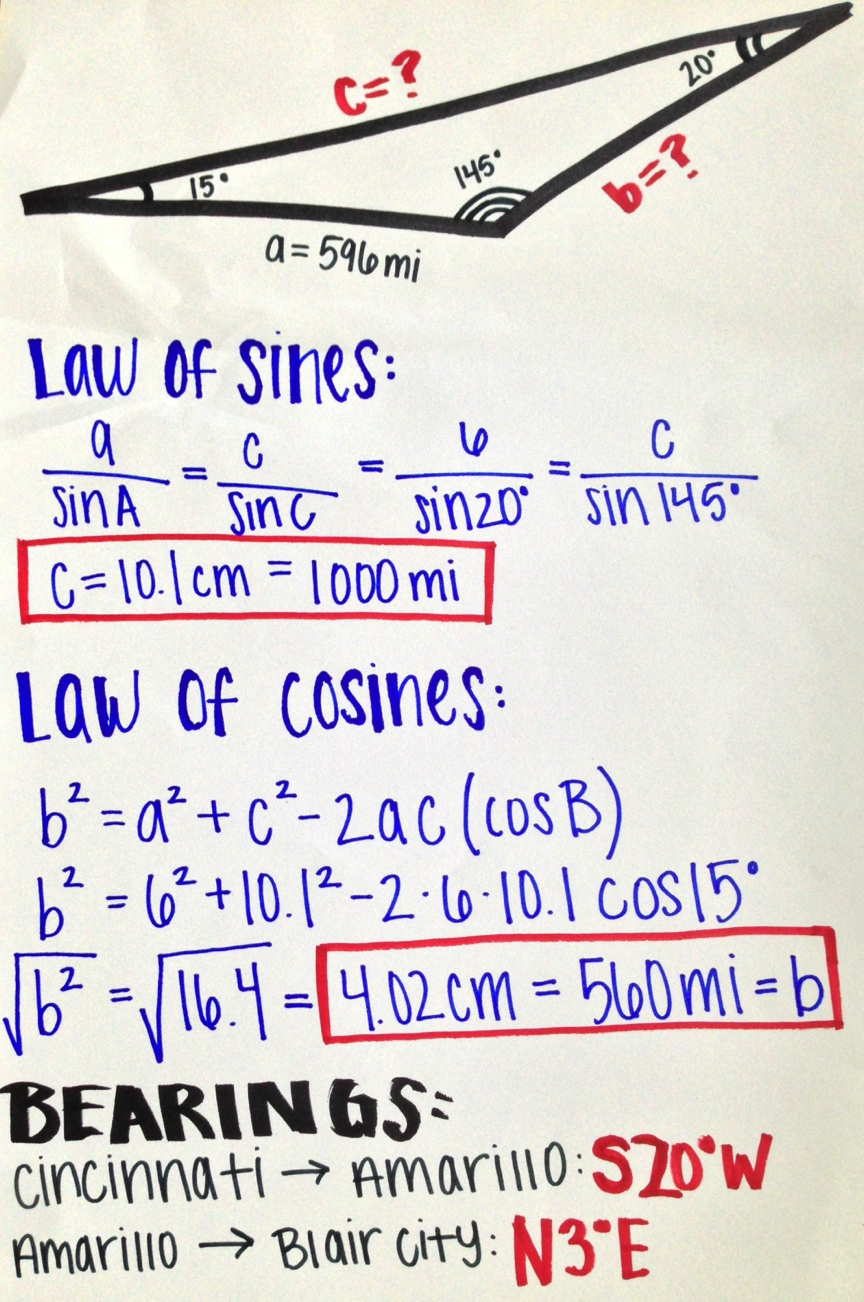 c=?
20°
15°
145°
b=?
a=596mi
Law of sines:
a/sinA = c/sinC = 6/sin20° = c/sin145°
c=10.1cm = 1000mi
Law of cosines:
b² = a² + c² - 2ac (cosB)
b² = 6² + 10.1² - 2·6·10.1 cos15°
√b² = √16.4 = 4.02cm = 560mi = b
BEARINGS:
Cincinnati → Amarillo: S20°W
Amarillo → Blair city: N3°E